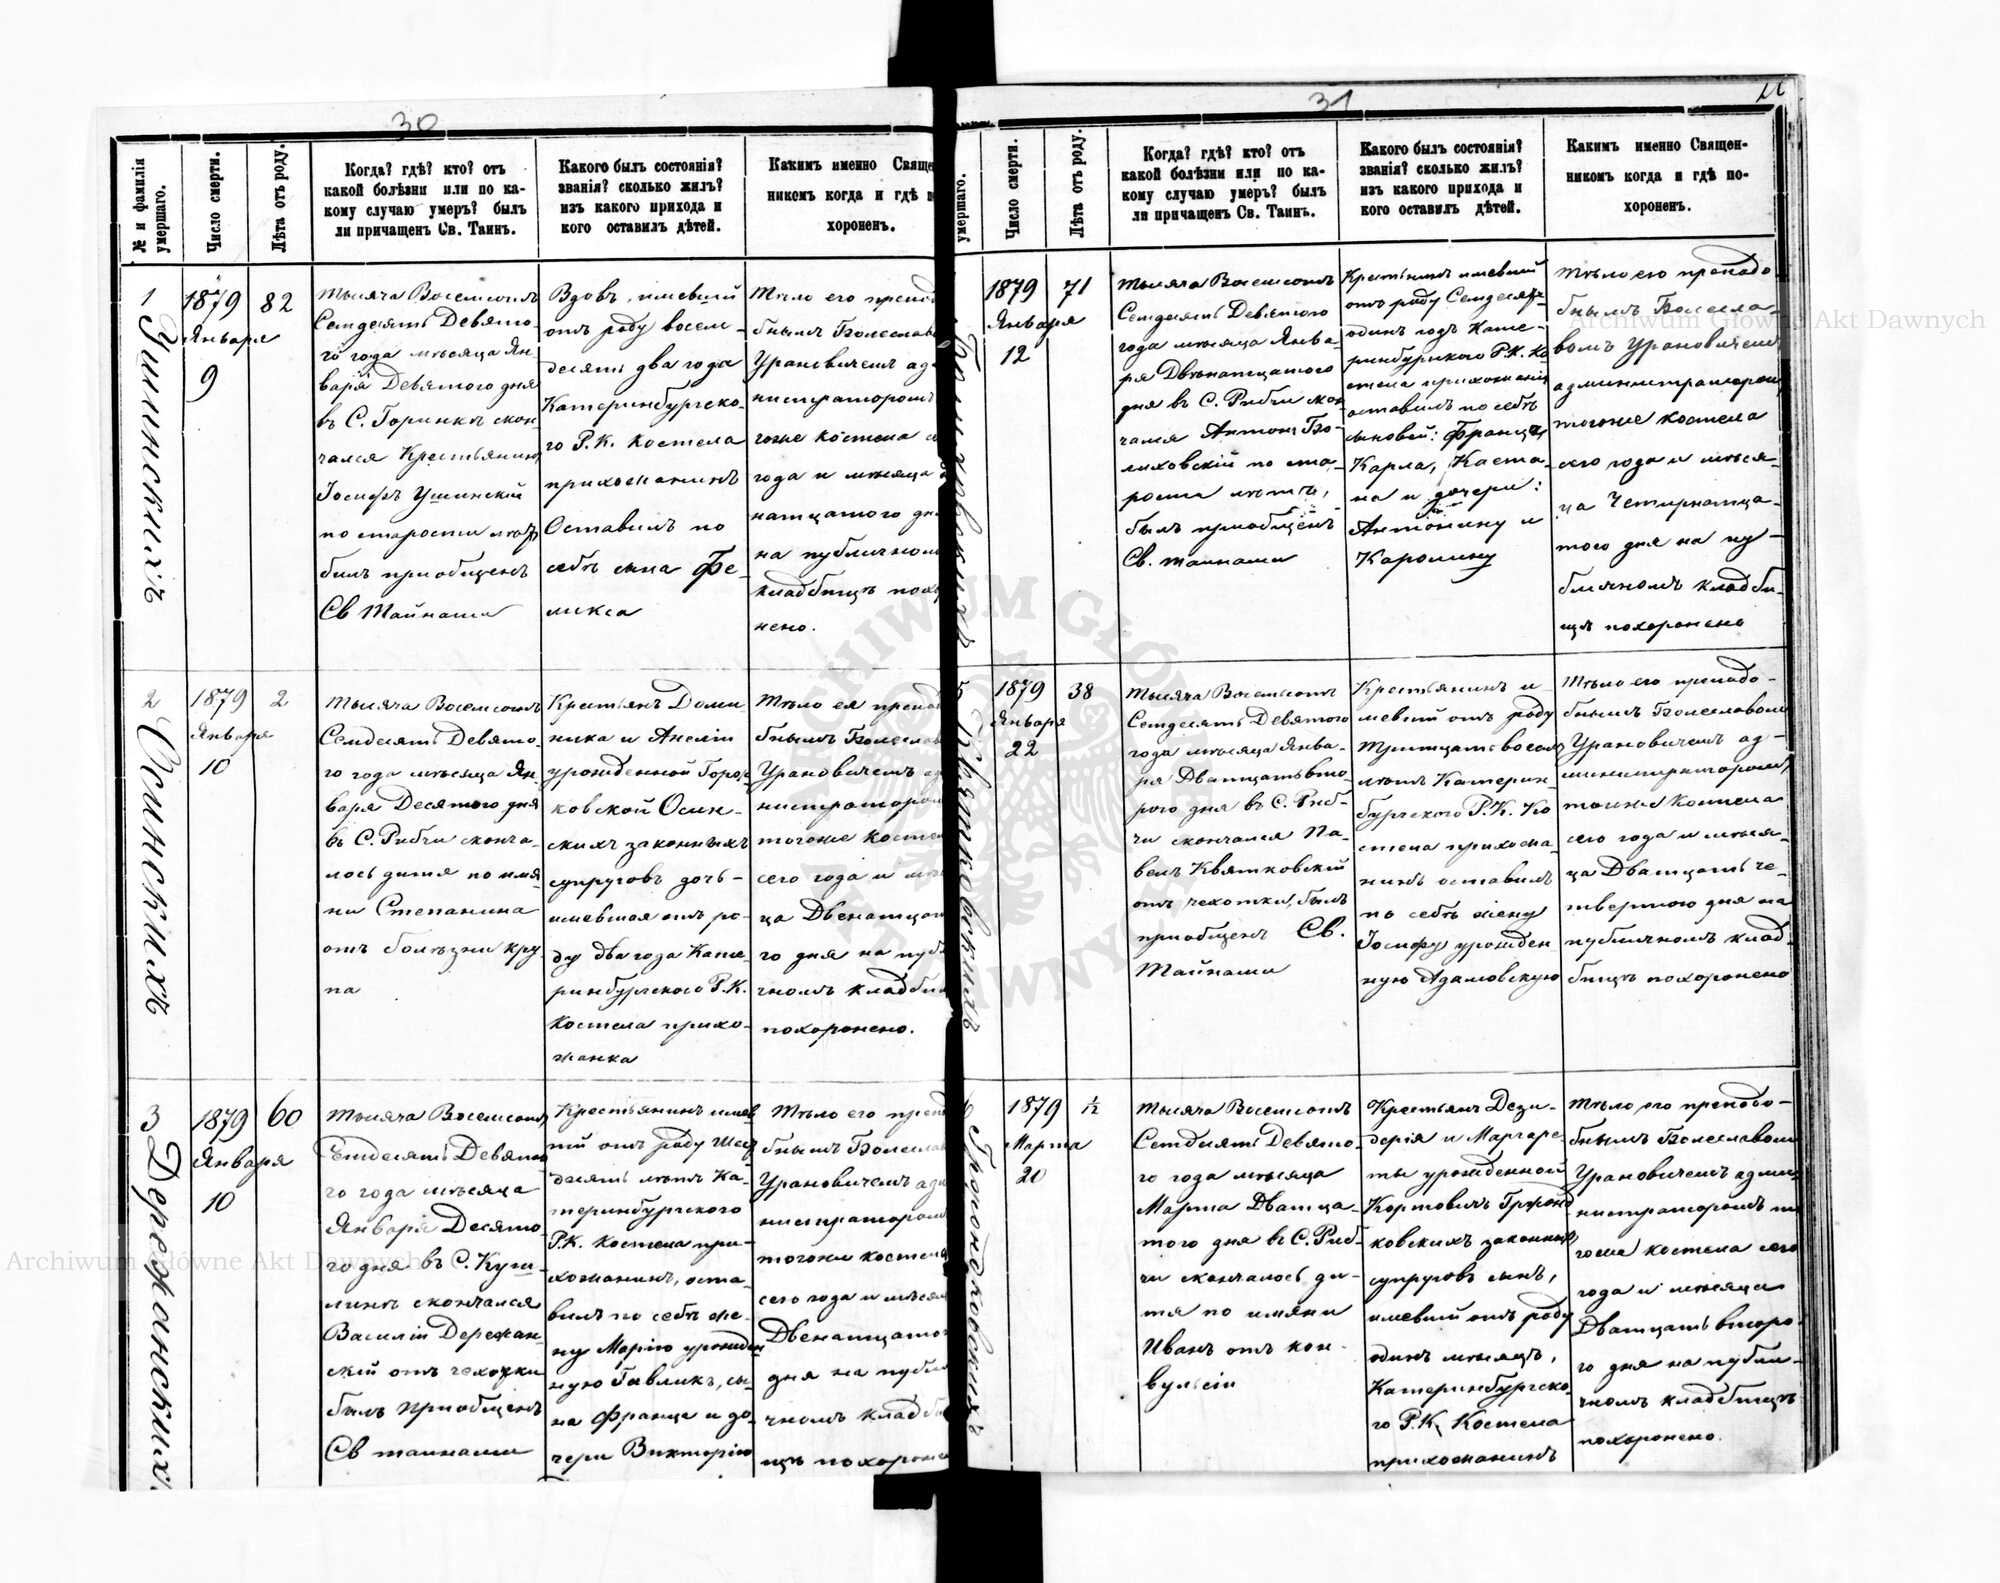 30
№ и фамилія умершаго.
Число смерти.
Лѣта отъ роду.
Когда? гдѣ? кто? отъ
какой болѣзни или по ка-
кому случаю умеръ? былъ
ли причащенъ Св. Таинъ.
Какого былъ состоянія?
званія? сколько жилъ?
изъ какого прихода и
кого оставилъ дѣтей.
Какимъ именно Свяще
никомъ когда и гдѣ п
хороненъ.
1
Ушинскихъ
1879
Января
9
82
Тысяча Восемсотъ
Семдесятъ Девято-
го года мѣсяца Ян-
варя Девятого дня
въ С. Горинкѣ скон-
чался Крестьянинъ
Іосифъ Ушинскій
по старости лѣтъ
былъ приобщенъ
Св Тайнами
Вдовъ, имевшій
отъ роду восем-
десятъ два года
Катеринбургско-
го Р.К. Костела
прихожанинъ
Оставилъ по
себѣ сына Фе-
ликса
Тѣло его препод
бнымъ Болеслав
Урановичемъ ад
нистраторомъ
гоже Костела с
года и мѣсяца
натцатого дн
на публичном
кладбищѣ похо
нено.
2
Осинскихъ
1879
Января
10
2
Тысяча Восемсотъ
Семдесятъ Девято-
го года мѣсяца Ян-
варя Десятого дня
въ С. Рибчи сконча-
лось дитя по имя-
ни Степанина
отъ болѣзни кру-
па
Крестьянъ Доми-
ника и Анеліи
урожденной Горж
ковской Осин-
скихъ законныхъ
супруговъ дочь-
имевшая отъ ро-
ду два года Кате-
ринбургского Р.К.
Костела прихо-
жанка
Тѣло ея препо
бнымъ Болеслав
Урановичемъ ад
нистраторо
тогоже косте
сего года и мѣ
ца Двенатцат
го дня на пуб
чномъ кладби
похоронено.
3
Держанскихъ
1879
Января
10
60
Тысяча Восемсотъ
Семдесятъ Девято
го года мѣсяца
Января Десято-
го дня въ С. Куш-
линѣ скончался
Василій Держан-
скій отъ чехотки
былъ приобщенъ
Св тайнами
Крестьянинъ имев
ій отъ роду Шес
десятъ лѣтъ Ка-
теринбургского
Р.К. Костела при-
хожанинъ, оста-
вилъ по себѣ же-
ну Марію урожден
ную Гавликъ, сы-
на Франца и до-
чери Викторію
Тѣло его преп
бнымъ Болеслав
Урановичемъ ад
нистраторомъ
тогоже костела
сего года и мѣся
Двенатцато
дня на публ
чномъ кладб
щѣ похороне
31
умершаго.
Число смерти.
Лѣта отъ роду.
Когда? гдѣ? кто? отъ
какой болѣзни или по ка-
кому случаю умеръ? былъ
ли причащенъ Св. Таинъ.
Какого былъ состоянія?
званія? сколько жилъ?
изъ какого прихода и
кого оставилъ дѣтей.
Какимъ именно Священ-
никомъ когда и гдѣ по-
хороненъ.
1879
Января
12
71
Тысяча Восемсотъ
Семдесятъ Девятого
года мѣсяца Янва-
ря Двѣнатцатого
дня въ С. Рибчи скон
чался Антонъ Бо-
лиховскій по ста-
рости лѣтъ,
былъ приобщенъ
Св. тайнами
Крестьянинъ имевшій
отъ роду Семдесятъ
одинъ годъ Кате-
ринбургского Р.К. Ко
стела прихожанинъ
оставилъ по себѣ
сыновей: Франца,
Карла, Каета-
на и дочери:
Антонину и
Каролину
Тѣло его преподо
бнымъ Болесла-
вомъ Урановичемъ
администраторомъ
тогоже костела
сего года и мѣся-
ца Четырнатца-
того дня на пу-
бличномъ кладби-
щѣ похоронено
5
Квятковскихъ
1879
Января
22
38
Тысяча Восемсотъ
Семдесятъ Девятого
года мѣсяца Янва-
ря Дватцатьвто-
рого дня въ С. Риб-
чи скончался Па-
велъ Квятковскій
отъ чехотки, былъ
приобщенъ Св.
Тайнами
Крестьянинъ и-
мевшій отъ роду
Тритцатьвосемъ
лѣтъ Катерин-
бургского Р.К. Ко
стела прихожа-
нинъ оставилъ
по себѣ жену
Іосифу урожден
ную Адамовскую
Тѣло его преподо-
бнымъ Болеславомъ
Урановичемъ ад-
министраторомъ
тогоже Костела
сего года и мѣся-
ца Двадцатьче-
твертого дня на
публичномъ клад-
бищѣ похоронено
6
Гржондковскихъ
1879
Марта
20
1/12
Тысяча Восемсотъ
Семдесятъ Девято-
го года мѣсяца
Марта Двадца-
того дня въ С. Риб-
чи скончалось ди-
тя по имяни
Иванъ отъ кон-
вульсіи
Крестьянъ Дези-
дерія и Маргаре-
ты урожденной
Кортовичъ Гржонд
ковскихъ законныхъ
супруговъ сынъ,
имевшій отъ роду
одинъ мѣсяцъ,
Катеринбургско-
го Р.К. Костела
прихожанинъ
Тѣло его преподо-
бнымъ Болеславомъ
Урановичемъ адми-
нистраторомъ то
гоже костела сего
года и мѣсяца
Двадцатьвторо-
го дня на публи-
чномъ кладбищѣ
похоронено.
Archiwum Główne Akt Dawnych
Archiwum Główne Akt Dawnych